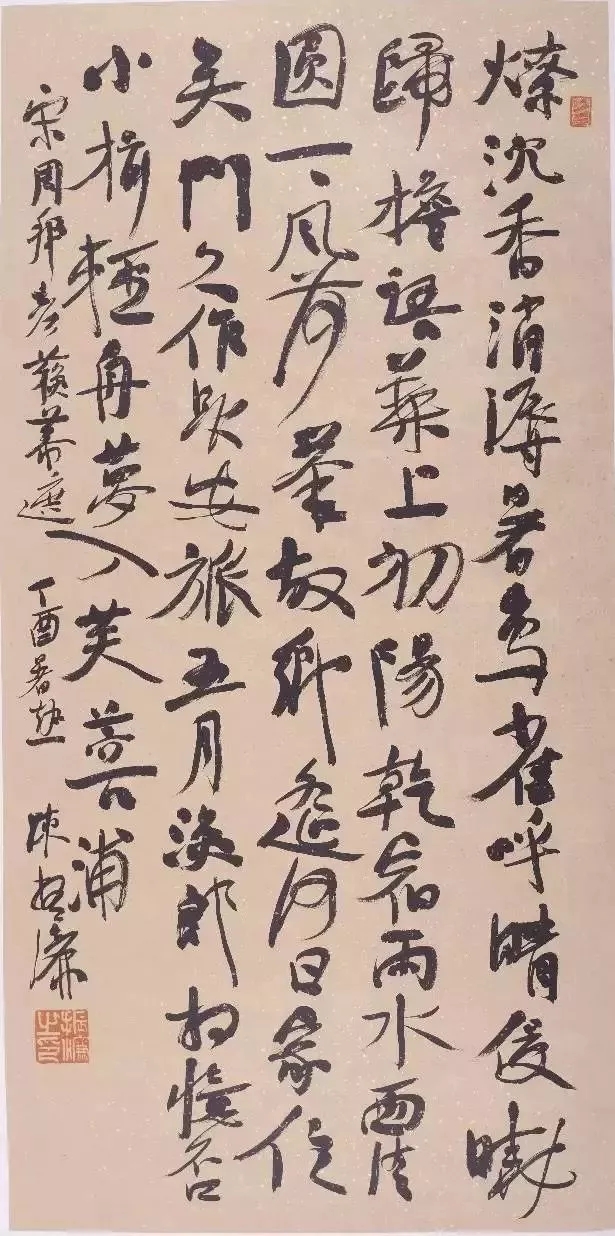 燎沈香消溽暑鸟雀呼晴侵曉
歸檐語葉上初陽乾宿雨水面清
圆一〻风荷舉故鄉遥何日家住
吴門久作長安旅五月漁郎相憶否
小楫輕舟夢入芙蓉浦
宋周邦彦蘇幕遮 丁酉暑熱 陳振濂
振濂之印